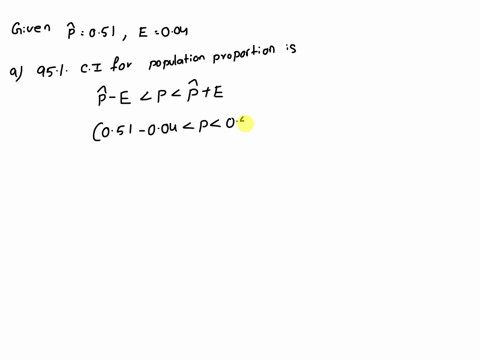 Given p̂ = 0.51 , E = 0.04
a) 95%. C.I for population proportion is
p̂ - E < P < p̂ + E
(0.51 - 0.04 < P < 0.